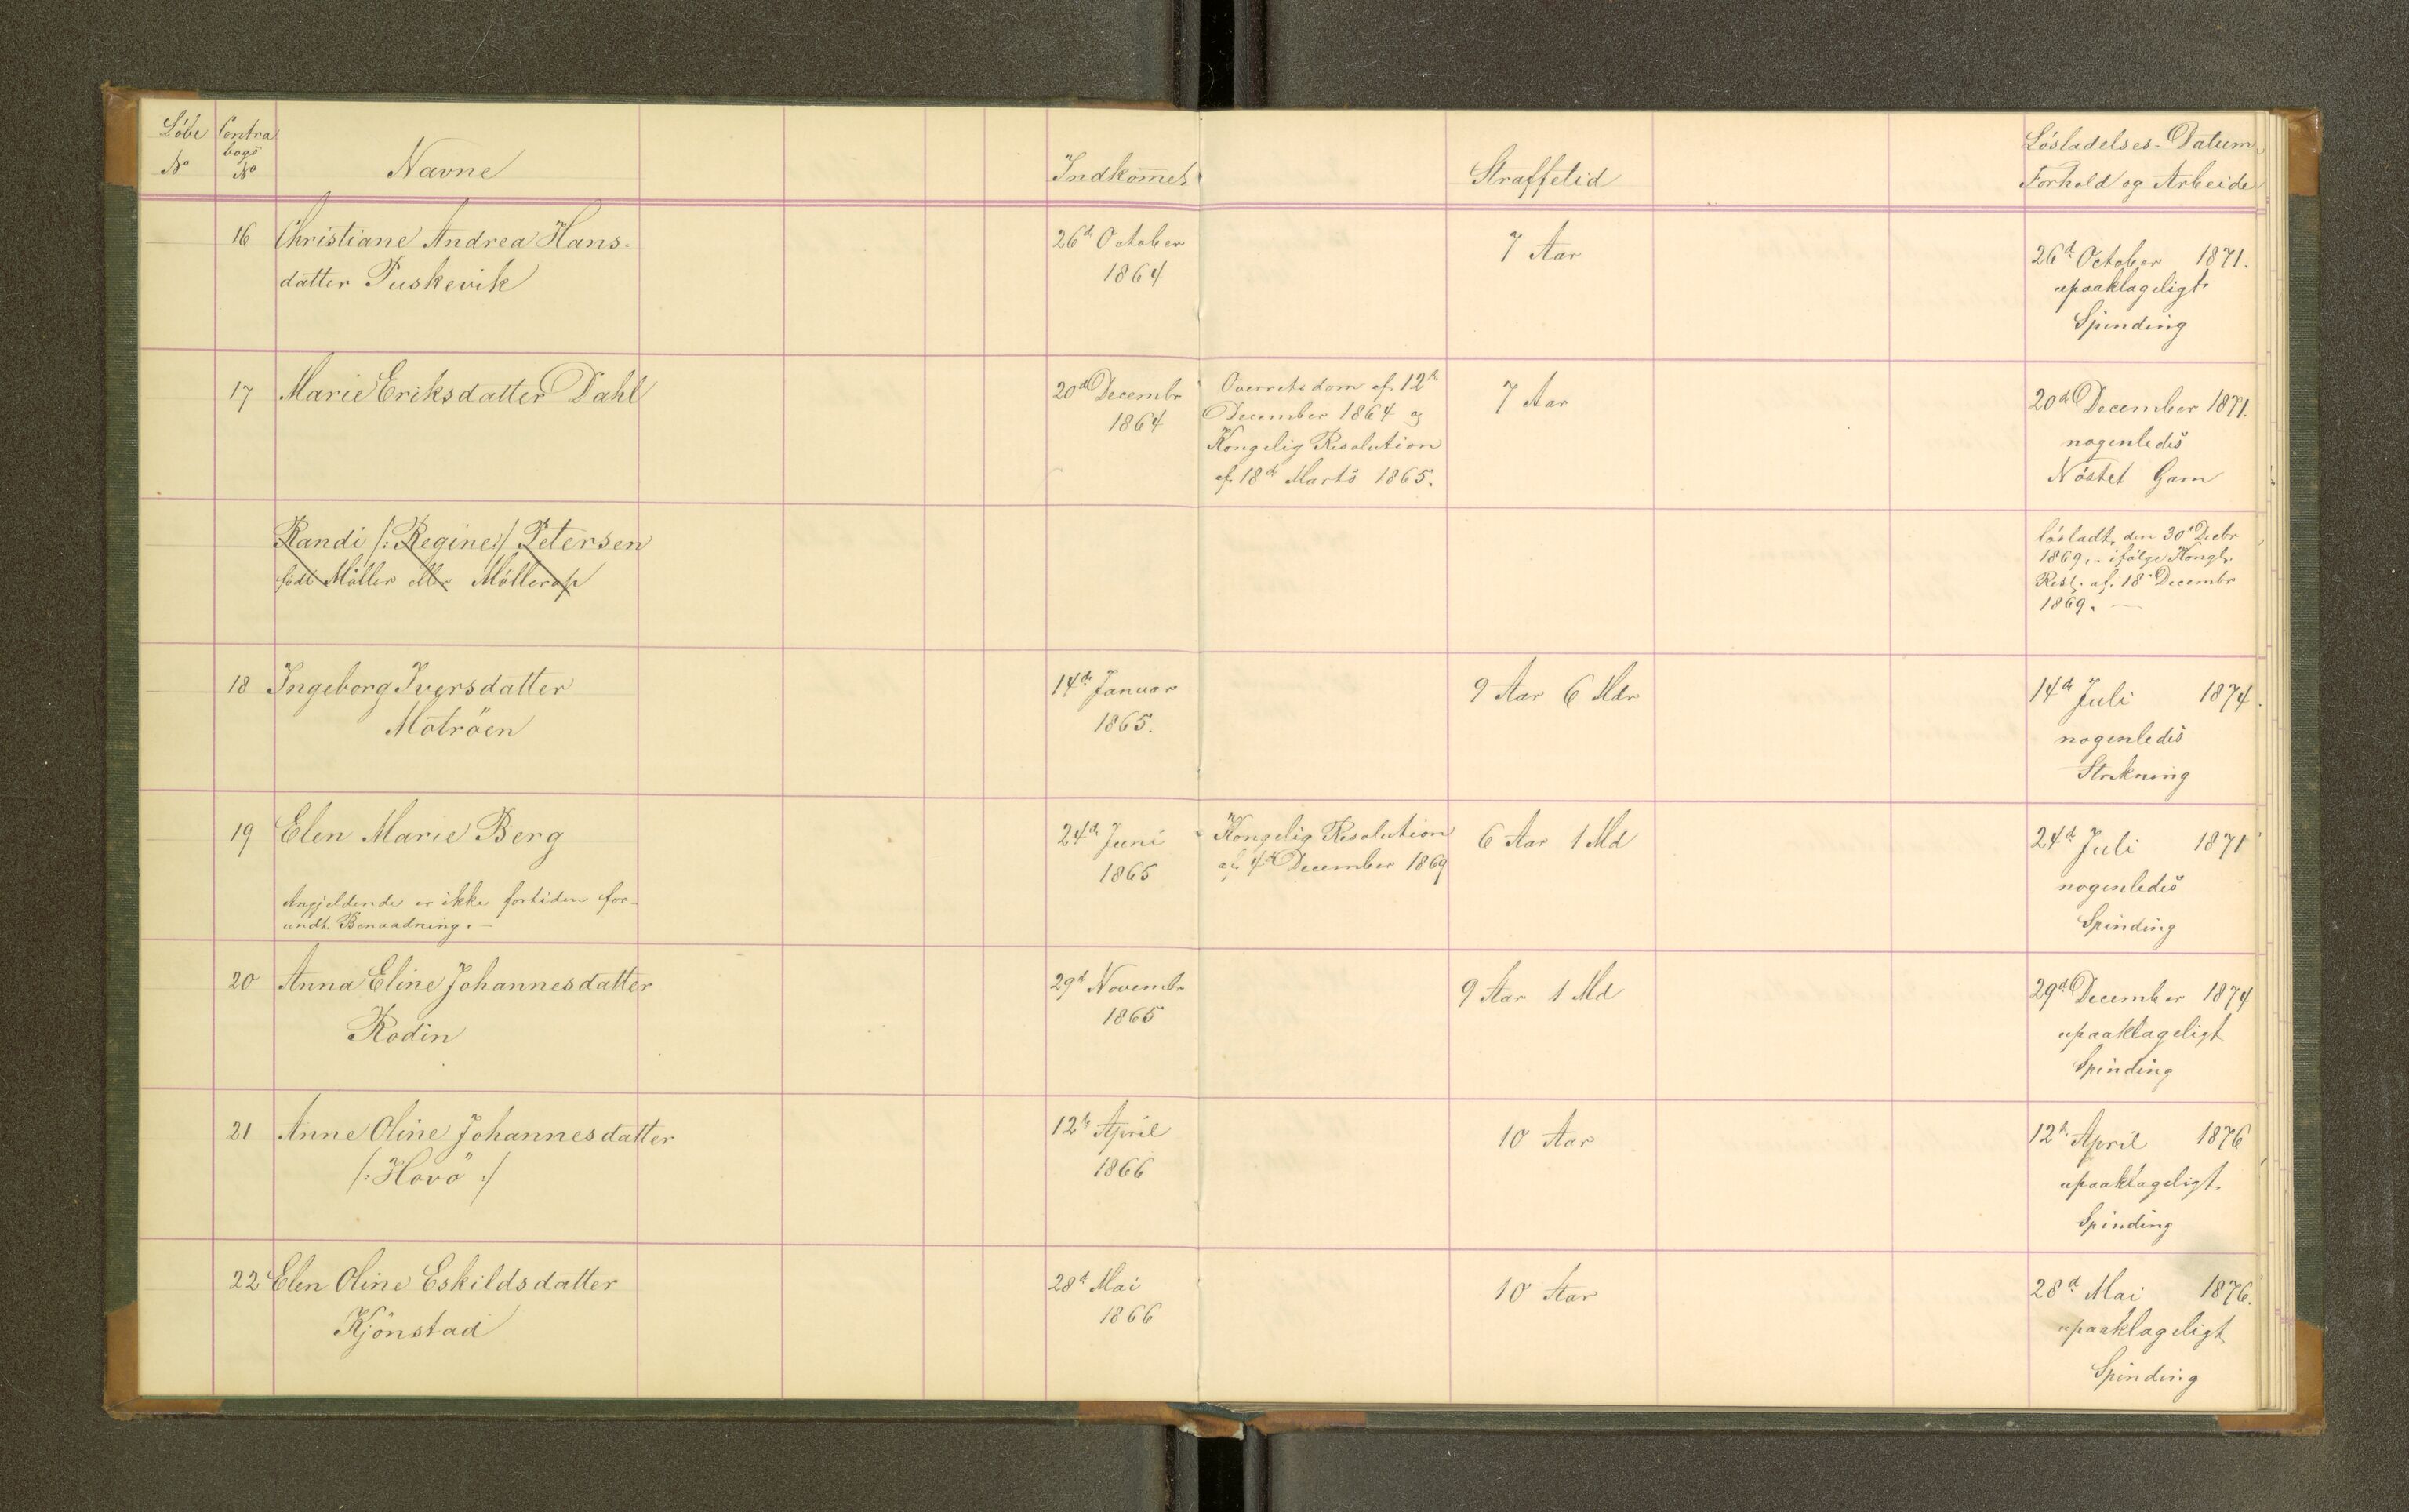 Löbe No
Contra bogs No
Navne
Indkom̅et
Straffetid
Lösladelses-Datum
Forhold og Arbeide
16 Christiane Andrea Hans-
datter Puskevik
26de October
1864
7 Aar
26d October 1871.
upaaklageligt
Spinding
17 Marie Eriksdatter Dahl
20d Decembr
1864
Overretsdom af 12te
December 1864 og
Kongelig Resolution
af 18d Marts 1865.
7 Aar
20d December 1871.
nogenledes
Nöstet Garn
Randi /: Regine :/ Petersen
född Möller eller Möllerop
lösladt den 30' Decbr
1869, ifölge Kongl.
Resl. af 18' Decembr
1869. —
18 Ingeborg Iversdatter
Moträen
14de Januar
1865.
9 Aar 6 Mdr
14de Juli 1874.
nogenledes
Strikning
19 Elen Marie Berg
Angjeldende er ikke fortiden for-
undt Benaadning. —
24de Juni
1865
Kongelig Resolution
af 4de December 1869
6 Aar 1 Md
24d Juli 1871
nogenledes
Spinding
20 Anna Eline Johannesdatter
Rodin
29d Novembr
1865
9 Aar 1 Md
29d December 1874
upaaklageligt
Spinding
21 Anne Oline Johannesdatter
/: Hovö :/
12te April
1866
10 Aar
12te April 1876
upaaklageligt
Spinding
22 Elen Oline Eskildsdatter
Kjönstad
28d Mai
1866
10 Aar
28d Mai 1876.
upaaklageligt
Spinding